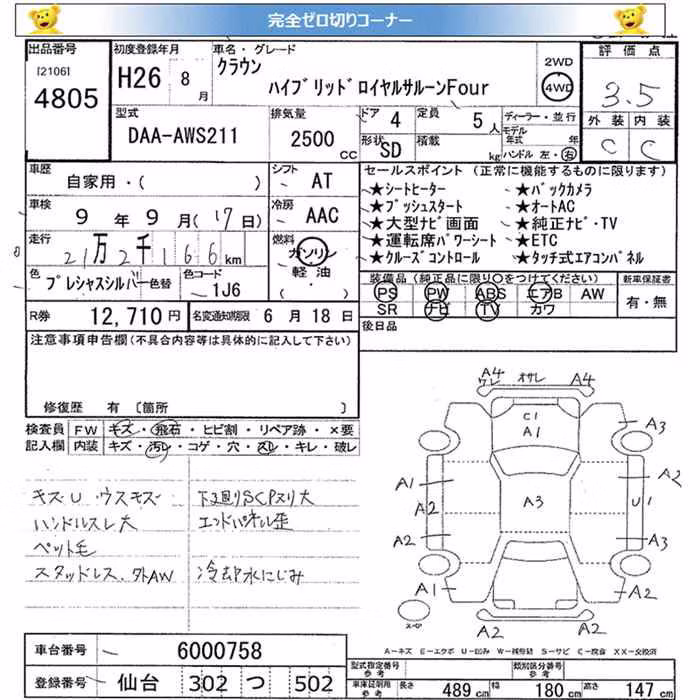 完全ゼロ切りコーナー
出品番号 初度登録年月 車名・グレード 評価点
[2106] 4805
H26 8月
クラウン
ハイブリッドロイヤルサルーンFour
2WD
4WD
3.5
外装 内装
C C
型式 排気量 ドア 4 定員 5人 ディーラー・並行
DAA-AWS211 2500CC
形状 SD 積載 kg
モデル年式 年
ハンドル 左・右
車歴 自家用・( )
シフト AT
セールスポイント (正常に機能するものに限ります)
車検 9年9月(17日)
冷房 AAC
★シートヒーター ★バックカメラ
★プッシュスタート ★オートAC
★大型ナビ画面 ★純正ナビ・TV
★運転席パワーシート ★ETC
★クルーズコントロール ★タッチ式エアコンパネル
走行 21万2千166km
燃料 ガソリン
軽油・
( )
色 プレシャスシルバー 色替
色コード 1J6
装備品 (純正品に限り○をつけてください) 新車保証書
PS PW ABS エアB AW 有・無
SR ナビ TV カワ
R券 12,710円 名変通知期限 6月18日
後日品
注意事項申告欄(不具合内容等は具体的に記入して下さい)
修復歴 有 〔箇所 〕
検査員 FW キズ・飛石・ヒビ割・リペア跡・×要
記入欄 内装 キズ・汚レ・コゲ・穴・スレ・キレ・破レ
キズU・ウスキズ 下廻りSCPヌリ大
ハンドルスレ大 エンドパネル歪
ペット毛
スタッドレス.外AW 冷却水にじみ
A4 ワレ オサレ A4
C1
A1
A3
A1 A2
A2 A3 U1
A2 A3
A1 A1
スペア A2 A2
A-キズ E-エクボ U-凹み W-補修跡 S-サビ C-腐食 XX-交換済
車台番号 6000758
登録番号 仙台 302 つ 502
型式指定番号 参考 類別区分番号 参考
車庫証明用 参考 長さ 489cm 幅 180cm 高さ 147cm